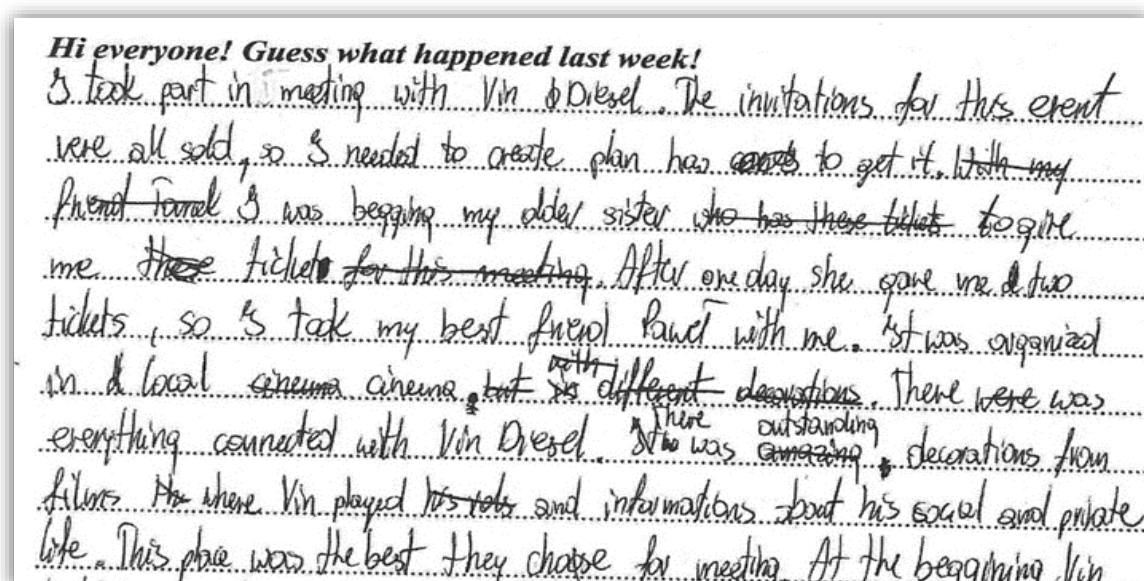 Hi everyone! Guess what happened last week!
I took part in meeting with Vin Diesel. The invitations for this event
were all sold, so I needed to create plan has to get it. With my
friend Paweł I was begging my older sister who has these tickets to give
me these ticket for this meeting. After one day she gave me two
tickets, so I took my best friend Paweł with me. It was organized
in local cinema cinema. but with different decorations. There were was
everything connected with Vin Diesel. There was amazing outstanding decorations from
films where Vin played his rols and informations about his social and private
life. This place was the best they choose for meeting. At the beggining Vin